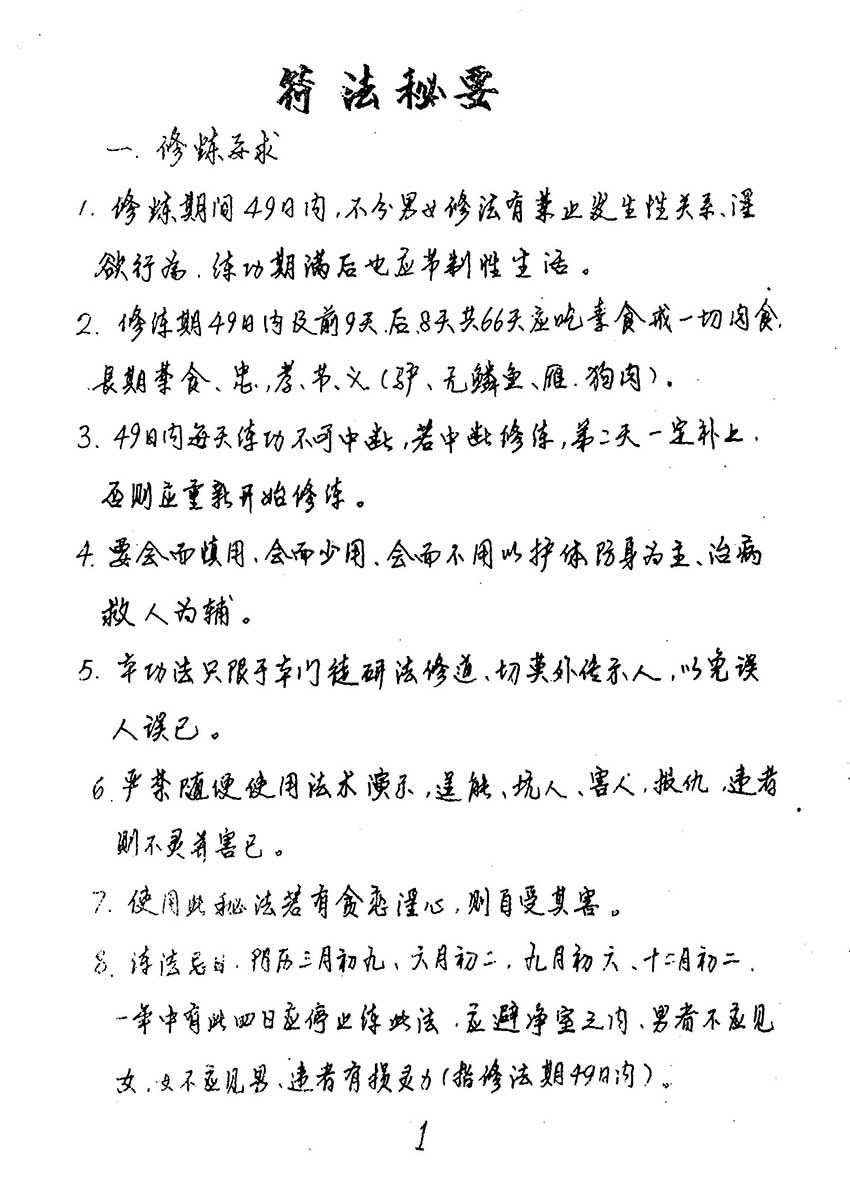 符法秘要
一.修炼要求
1. 修炼期间49日内,不分男女修法有禁止发生性关系、淫
欲行为.练功期满后也应节制性生活。
2. 修练期49日内及前9天.后8天共66天应吃素食戒一切肉食.
长期禁食、忠,孝、节、义(驴、无鳞鱼、雁.狗肉)。
3. 49日内每天练功不可中断,若中断修练,第二天一定补上.
否则应重新开始修练。
4. 要会而慎用、会而少用、会而不用以护体防身为主、治病
救人为辅。
5. 本功法只限于本门徒研法修道、切莫外传示人,以免误
人误已。
6. 严禁随便使用法术演示,逞能、坑人、害人,报仇,违者
则不灵并害已。
7. 使用此秘法若有贪恋淫心,则自受其害。
8. 练法忌日.阴历三月初九、六月初二,九月初六、十二月初二.
一年中有此四日应停止练此法.应避净室之内、男者不应见
女.女不应见男、违者有损灵力(指修法期49日内)。
1